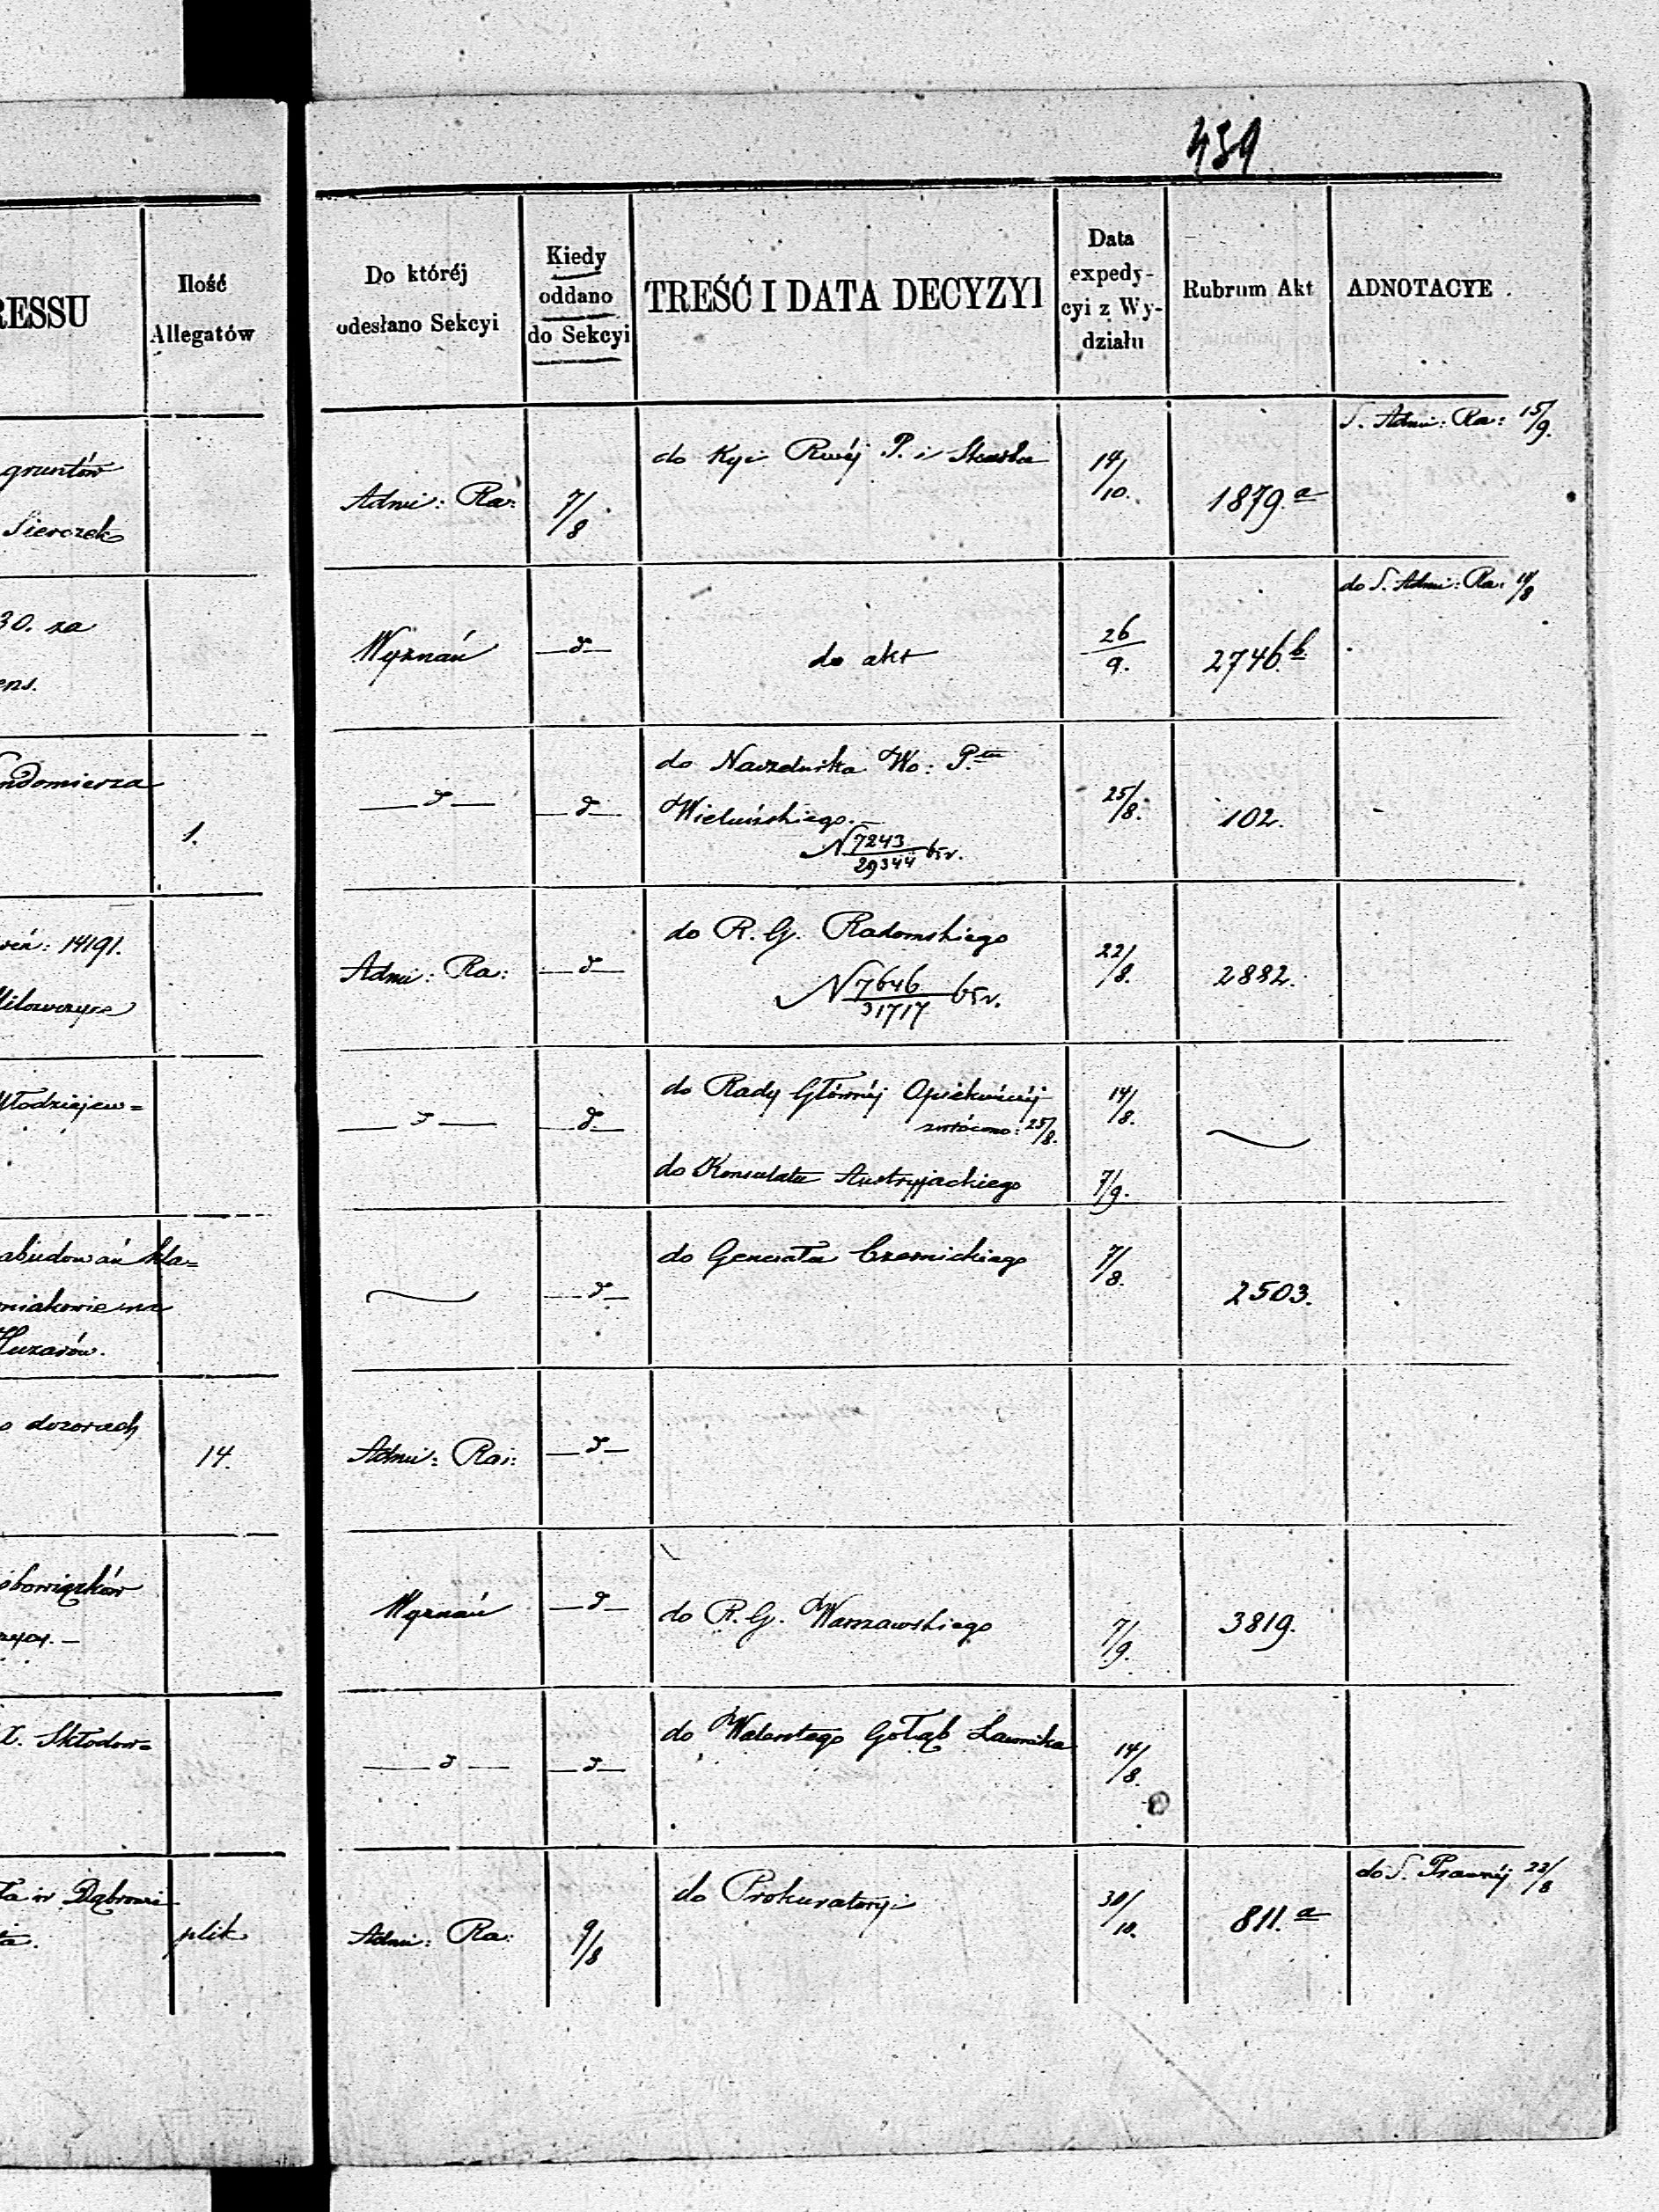 459
RESSU
Ilość
Allegatów
Do któréj
odesłano Sekcyi
Kiedy
oddano
do Sekcyi
TREŚĆ I DATA DECYZYI
Data
expedy-
cyi z Wy-
działu
Rubrum Akt
ADNOTACYE.
gruntów
Sierczek
Admi: Ra:
7/8
do Kyi Rwéj P. i Skarbu
14/10.
1879. a
S. Admi: Ra: 15/9.
30. za
ens.
Wyznań
—d—
do akt
26/9.
2746. b.
do S. Admi: Ra: 11/8
ndomierza
1.
—d—
—d—
do Naczelnika Wo: P.tu
Wieluńskiego.—
N 7243/29344 bśr.
25/8.
102.
14191.
Miłowczyce
Admi: Ra:
—d—
do R. G. Radomskiego
N 7646/31717 bśr.
22/8.
2882.
Włodziejew=
—d—
—d—
do Rady Głównéj Opiekuńczéj
zwrócono: 25/8.
14/8.
do Konsulatu Austryjackiego
7/9.
abudowań kla=
niakowie na
Huzarów.
—d—
do Generała Czernickiego
7/8.
2503.
o dozorach
14.
Admi: Ra:
—d—
obowiązków
Wyznań
—d—
do R. G. Warszawskiego
7/9.
3819.
X. Skłodow=
—d—
—d—
do Walentego Gołąb Ławnika
14/8.
ła w Dąbrowie
ta.
plik
Admi: Ra:
9/8
do Prokuratoryi
30/10.
811. a
do S. Prawnéj 22/8